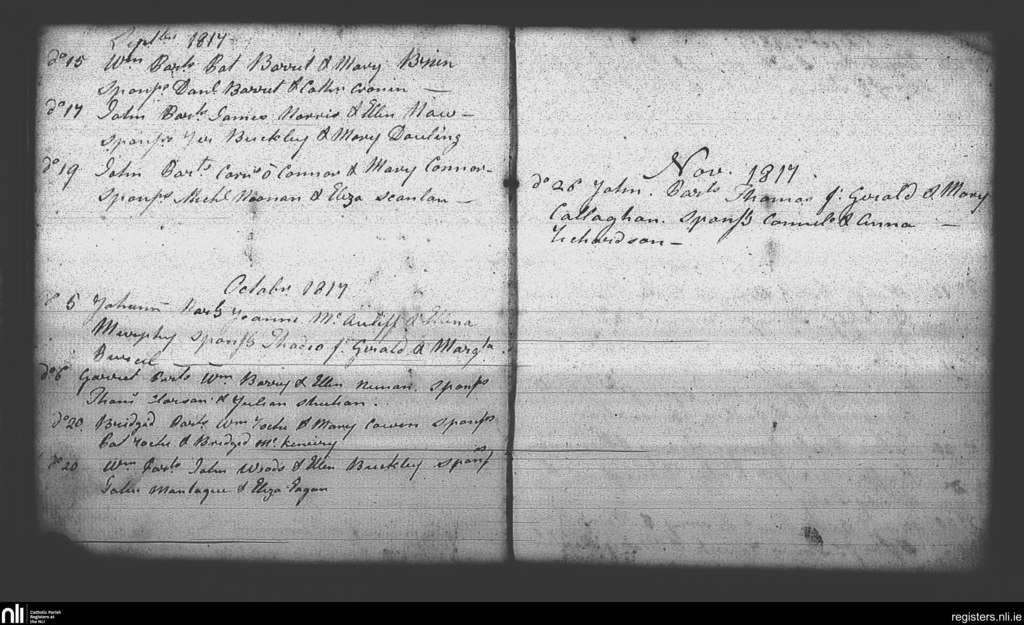 Septbr 1817
do 15 Wm Parts Pat Barret & Mary Brien
Sponsrs Danl Barret & Cathr Cronin —
do 17 John Parts James Norris & Ellen
Sponsrs Buckley & Mary Dowling
do 19 John Parts O Connor & Mary Connor
Sponsrs Michl Noonan & Eliza Scanlan —
Octobr 1817
do 5 Parts Joanne Mc Auliff & Elena
Murphy Sponsrs Thadeo f. Gerald & Margta
do 6 Garret Parts Wm Barry & Ellen Sponsrs
& Julian
do 20 Bridgid Parts Wm roche & Mary Sponsrs
Pat roche & Bridgid Mc
do 20 Wm Parts John Woods & Ellen Buckley Spons
John Mantague & Eliza Fagan
Nov. 1817.
do 26 John. Parts Thomas f. Gerald & Mary
Callaghan. Sponsrs & Anna —
richardson —
nli
Catholic Parish
Registers at
the NLI
registers.nli.ie